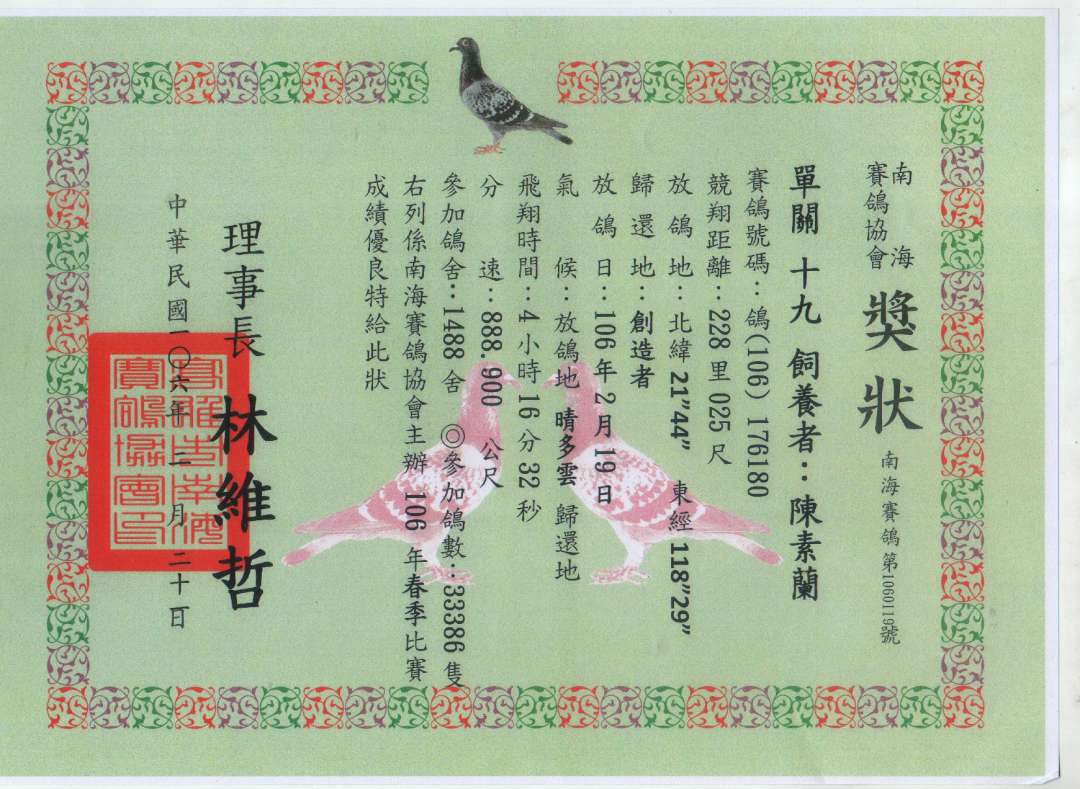 南海
賽鴿協會
獎狀
南海賽鴿第1060119號
單關 十九 飼養者：陳素蘭
賽鴿號碼：鴿(106) 176180
競翔距離：228 里 025 尺
放鴿地：北緯 21”44” 東經 118”29”
歸還地：創造者
放鴿日：106 年 2 月 19 日
氣候：放鴿地 晴多雲 歸還地
飛翔時間：4 小時 16 分 32 秒
分速：888.900 公尺
參加鴿舍：1488 舍 ◎參加鴿數：33386 隻
右列係南海賽鴿協會主辦 106 年春季比賽
成績優良特給此狀
理事長 林維哲
中華民國一〇六年 二月 二十日